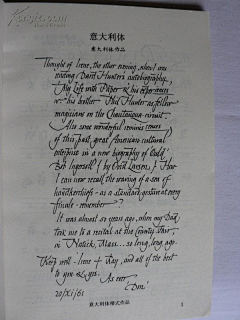 意大利体
意大利体作品
Thought of Irene, the other evening, when I was
reading Dard Hunter's autobiography,
My Life with Paper & his experiences
w. his brother Phil Hunter as fellow
magicians on the Chautauqua circuit.
Also some wonderful reminis
of this past, great American cultural
enterprise in a new biography of Col.
Bob Ingersoll (by Orvin Larson). How
I can now recall the waving of a sea of
handkerchiefs - as a standard gesture at every
finale - remember?
It was almost 50 years ago, when my Dad
took me to a recital at the County Fair
in Natick, Mass... so long, long ago.
Keep well - Irene & Ray, and all of the best
to you & yrs.
As ever
Don
20/XI/61
意大利体格式作品
1